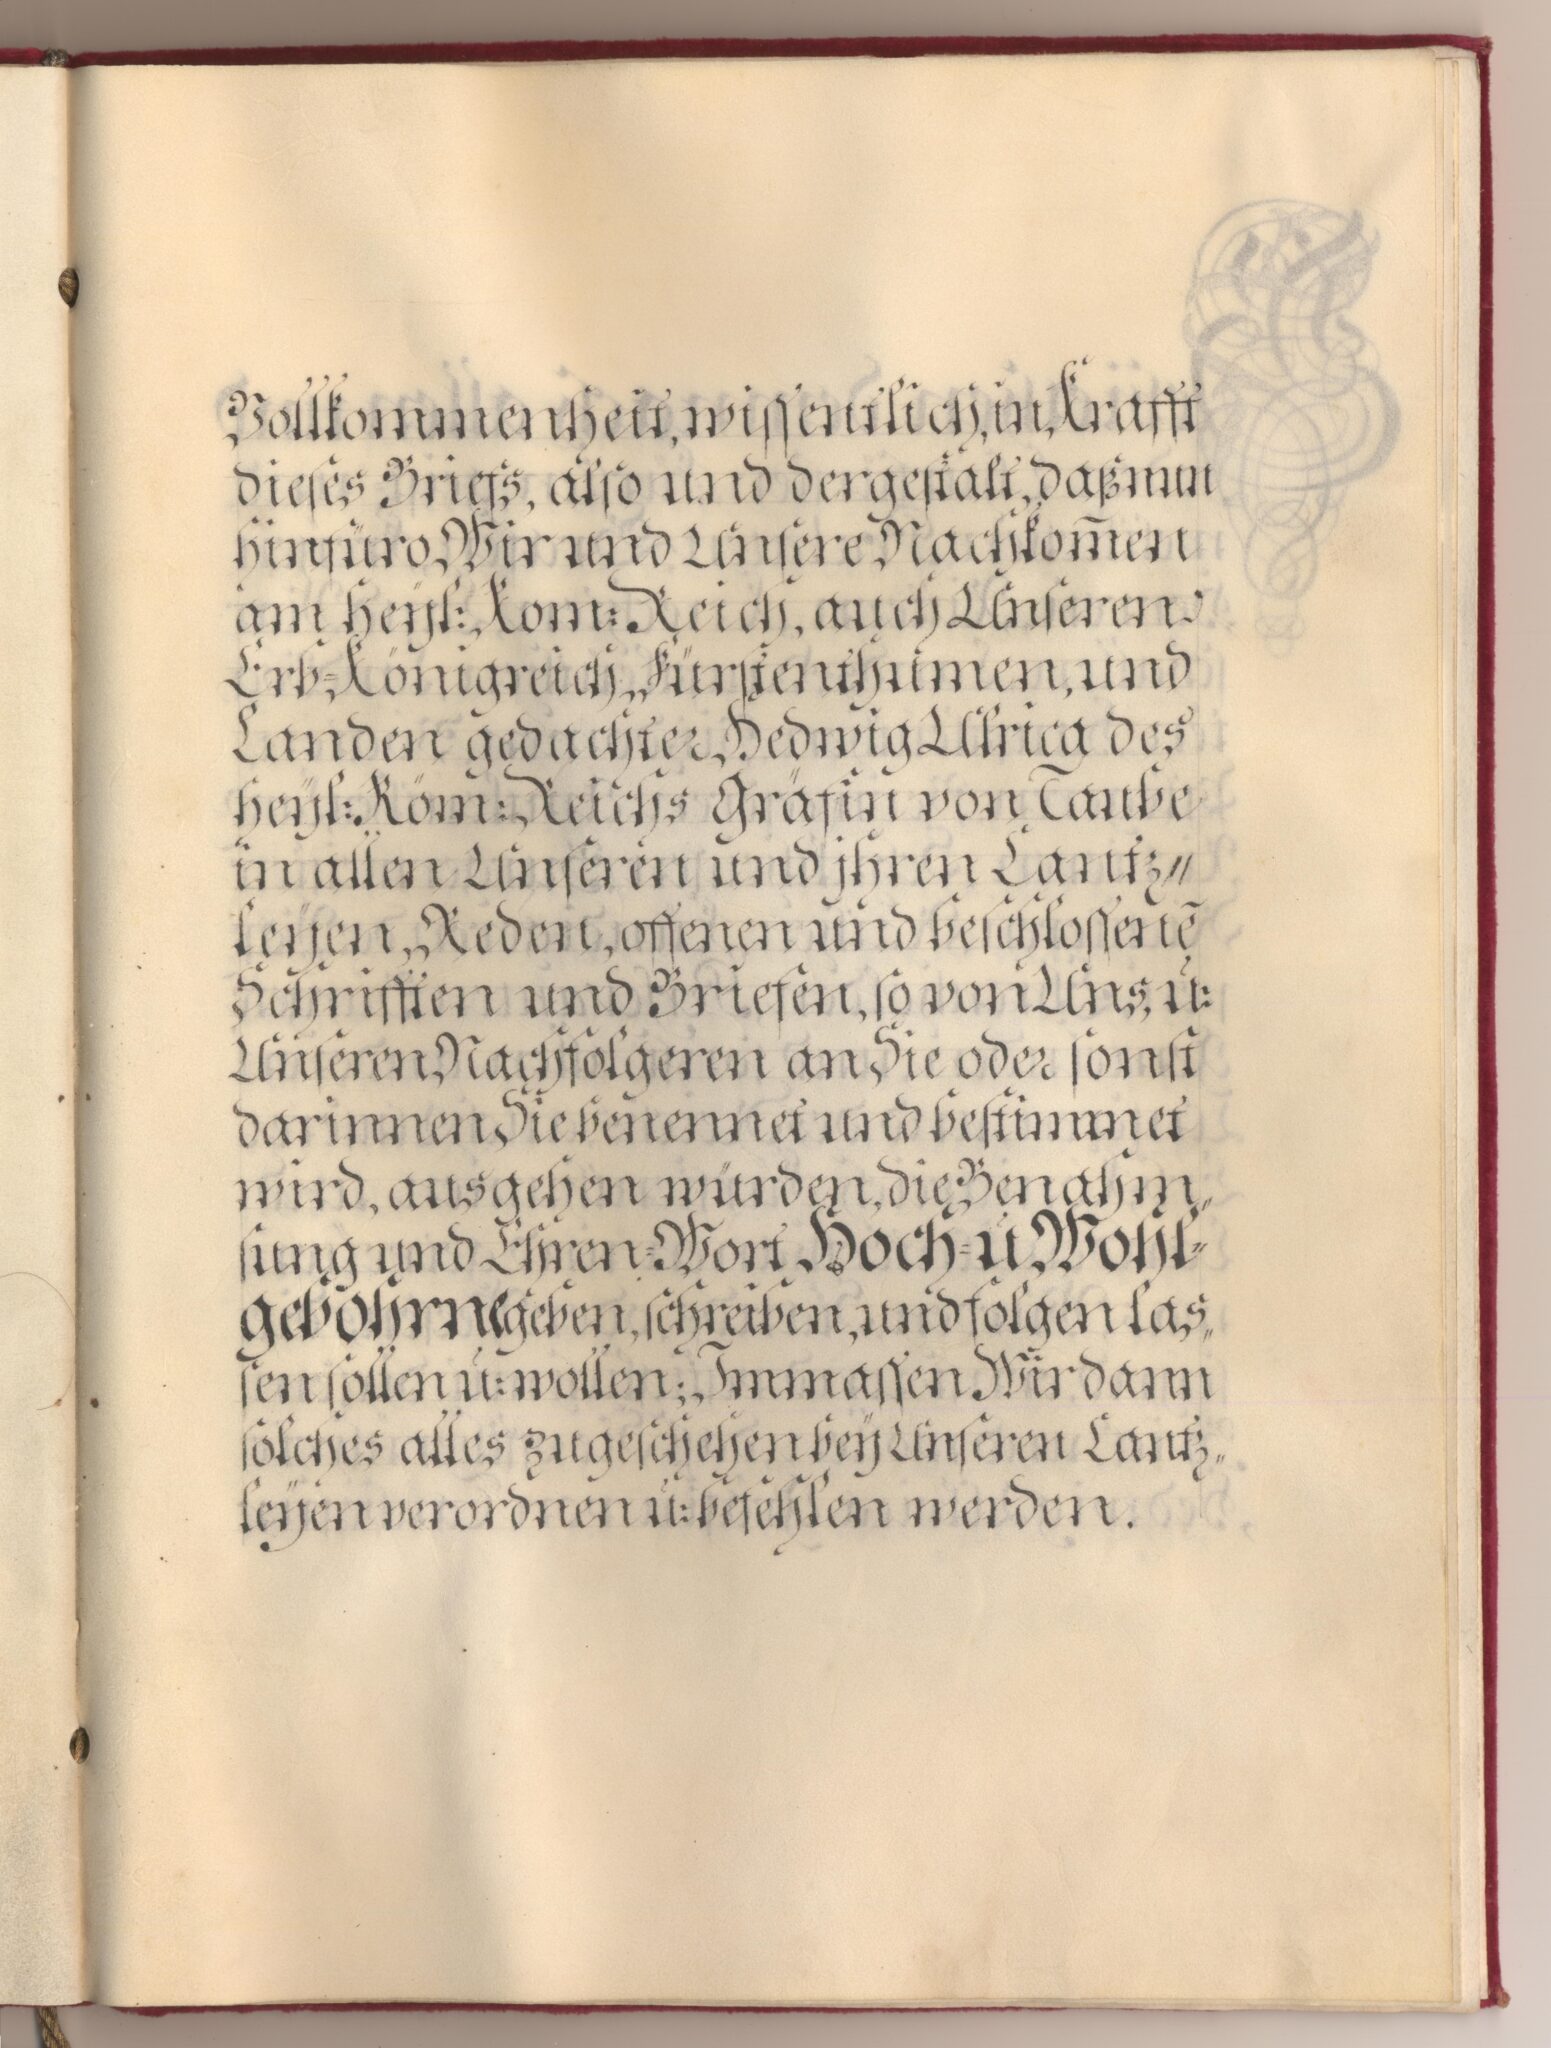 Vollkommenheit, wissentlich, in Krafft
dieses Briefs, also und dergestalt, daß nun
hinfüro Wir und Unsere Nachkom̄en
am heyl: Röm: Reich, auch Unseren
Erb=Königreich, Fürstenthumen, und
Landen gedachter Hedwig Ulrica des
heyl: Röm: Reichs Gräfin von Taube
in allen Unseren und jhren Cantz〃
leyen, Reden, offenen und beschlossenē
Schrifften und Briefen, so von Uns, u:
Unseren Nachfolgeren an Sie oder sonst
darinnen Sie benennet und bestimmet
wird, ausgehen würden, die Benahm〃
sung und Ehren=Wort Hoch= u Wohl=
gebohrne geben, schreiben, und folgen las〃
sen sollen u: wollen; Immassen Wir dann
solches alles zugeschehen bey Unseren Cantz〃
leyen verordnen u: befehlen werden.